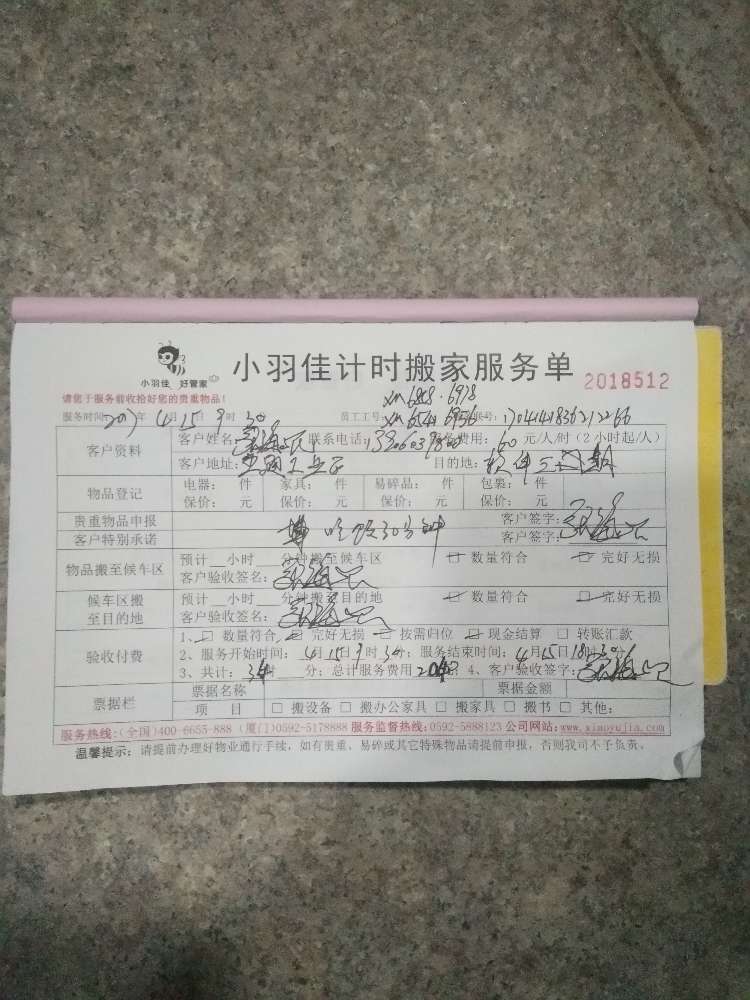 小羽佳 好管家
小羽佳计时搬家服务单
2018512
请您于服务前收拾好您的贵重物品!
XM6868·6978
服务时间:2017年4月15日9时30 员工工号:XM6541 6956 账号:17041418361212266
客户资料
客户姓名: 联系电话: 费用:60元/人/时(2小时起/人)
客户地址: 工业区 目的地:软件
物品登记
电器: 件 家具: 件 易碎品: 件 包裹: 件
保价: 元 保价: 元 保价: 元 保价: 元
贵重物品申报 客户签字:
客户特别承诺 吃饭30分钟 客户签字:
物品搬至候车区
预计__小时__分钟搬至候车区 □ 数量符合 □ 完好无损
客户验收签名:
候车区搬至目的地
预计__小时__分钟搬至目的地 □ 数量符合 □ 完好无损
客户验收签名:
验收付费
1、□ 数量符合 □ 完好无损 □ 按需归位 □ 现金结算 □ 转账汇款
2、服务开始时间:4月15日9时30分;服务结束时间:4月15日18时30分
3、共计:34时 分;总计服务费用2040 4、客户验收签字:
票据栏
票据名称 票据金额
项 目 □ 搬设备 □ 搬办公家具 □ 搬家具 □ 搬书 □ 其他:
服务热线:(全国)400-6655-888 (厦门)0592-5178888 服务监督热线:0592-5888123 公司网站:www.xiaoyujia.com
温馨提示:请提前办理好物业通行手续,如有贵重、易碎或其它特殊物品请提前申报,否则我司不予负责。